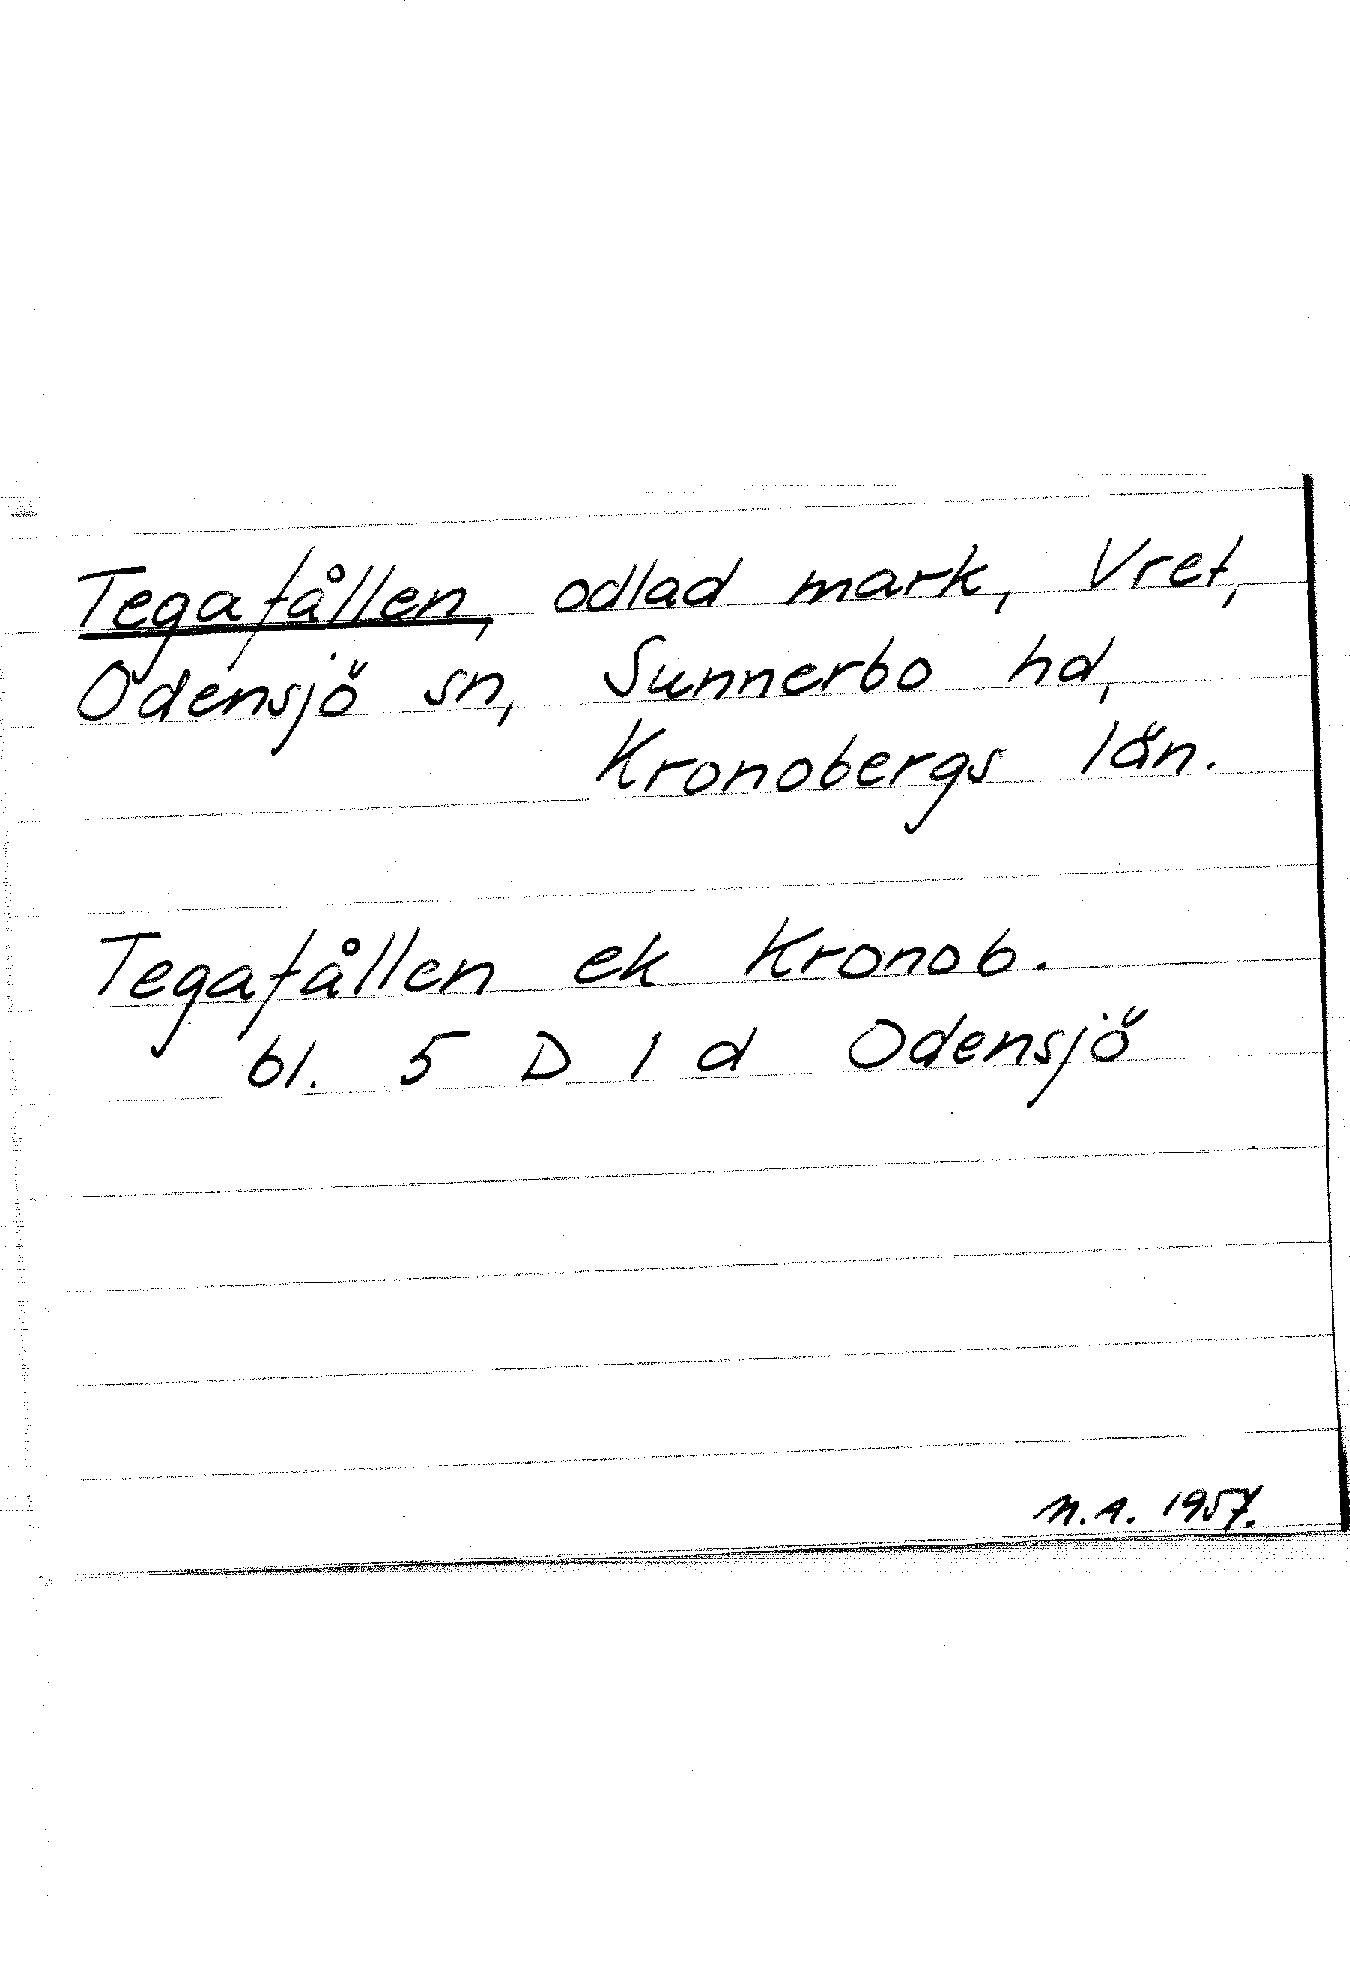 Tegafållen, odlad mark, Vret,
Odensjö sn, Sunnerbo hd,
Kronobergs län.
Tegafållen ek Kronob.
bl. 5 D 1 d Odensjö
M.A. 1957.